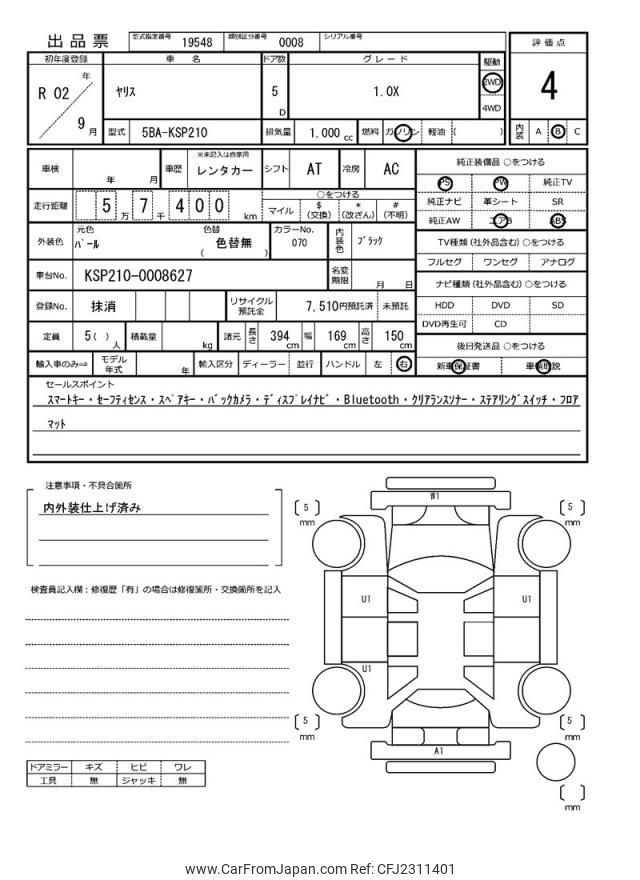 出品票 型式指定番号 19548 類別区分番号 0008 シリアル番号
初年度登録 車名 ドア数 グレード 駆動 評価点
R 02 年 9 月 ヤリス 5 D 1.0X 2WD 4WD 4
型式 5BA-KSP210 排気量 1.000 cc 燃料 ガソリン 軽油 ( ) 内装 A B C
車検 年 月 車歴 ※未記入は自家用 レンタカー シフト AT 冷房 AC 純正装備品 ○をつける
PS PW 純正TV
走行距離 5 万 7 千 4 0 0 km ○をつける 純正ナビ 革シート SR
マイル $ (交換) * (改ざん) # (不明) 純正AW エアB ABS
外装色 元色 パール 色替 ( 色替無 ) カラーNo. 070 内装色 ブラック TV種類(社外品含む)○をつける
フルセグ ワンセグ アナログ
車台No. KSP210-0008627 名変期限 月 日 ナビ種類(社外品含む)○をつける
登録No. 抹消 リサイクル預託金 7,510円預託済 未預託 HDD DVD SD
DVD再生可 CD
定員 5( ) 人 積載量 kg 諸元 長さ 394 cm 幅 169 cm 高さ 150 cm 後日発送品 ○をつける
輸入車のみ⇒ モデル年式 年 輸入区分 ディーラー 並行 ハンドル 左 右 新車保証書 車輌取説
セールスポイント
スマートキー・セーフティセンス・スペアキー・バックカメラ・ディスプレイナビ・Bluetooth・クリアランスソナー・ステアリングスイッチ・フロア
マット
注意事項・不具合箇所
内外装仕上げ済み
検査員記入欄:修復歴「有」の場合は修復箇所・交換箇所を記入
W1
5 mm
5 mm
U1
U1
U1
5 mm
5 mm
A1
mm
ドアミラー キズ ヒビ ワレ
工具 無 ジャッキ 無
www.CarFromJapan.com Ref: CFJ2311401